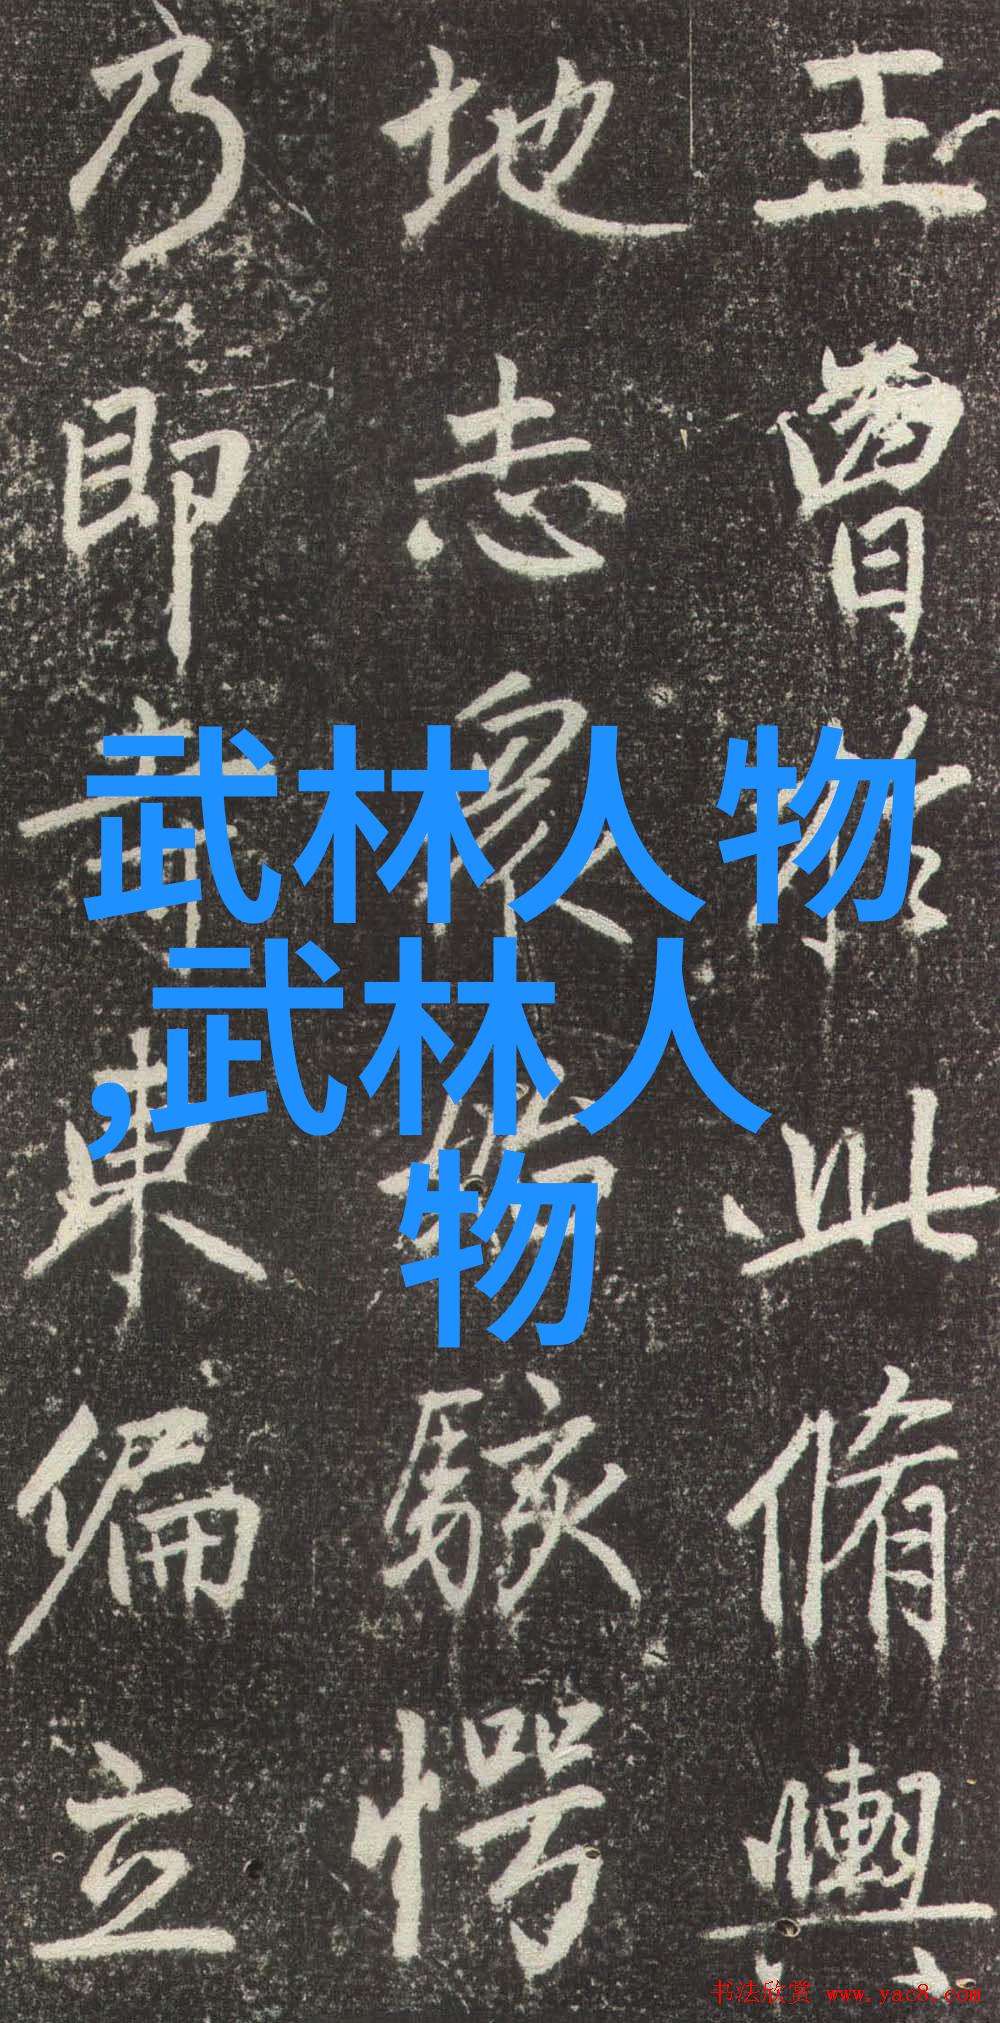 王曾於此脩輿
地志衆駭愕
乃即寺東偏立
武林人物
,武林人
物
书法欣赏 www.yac8.com